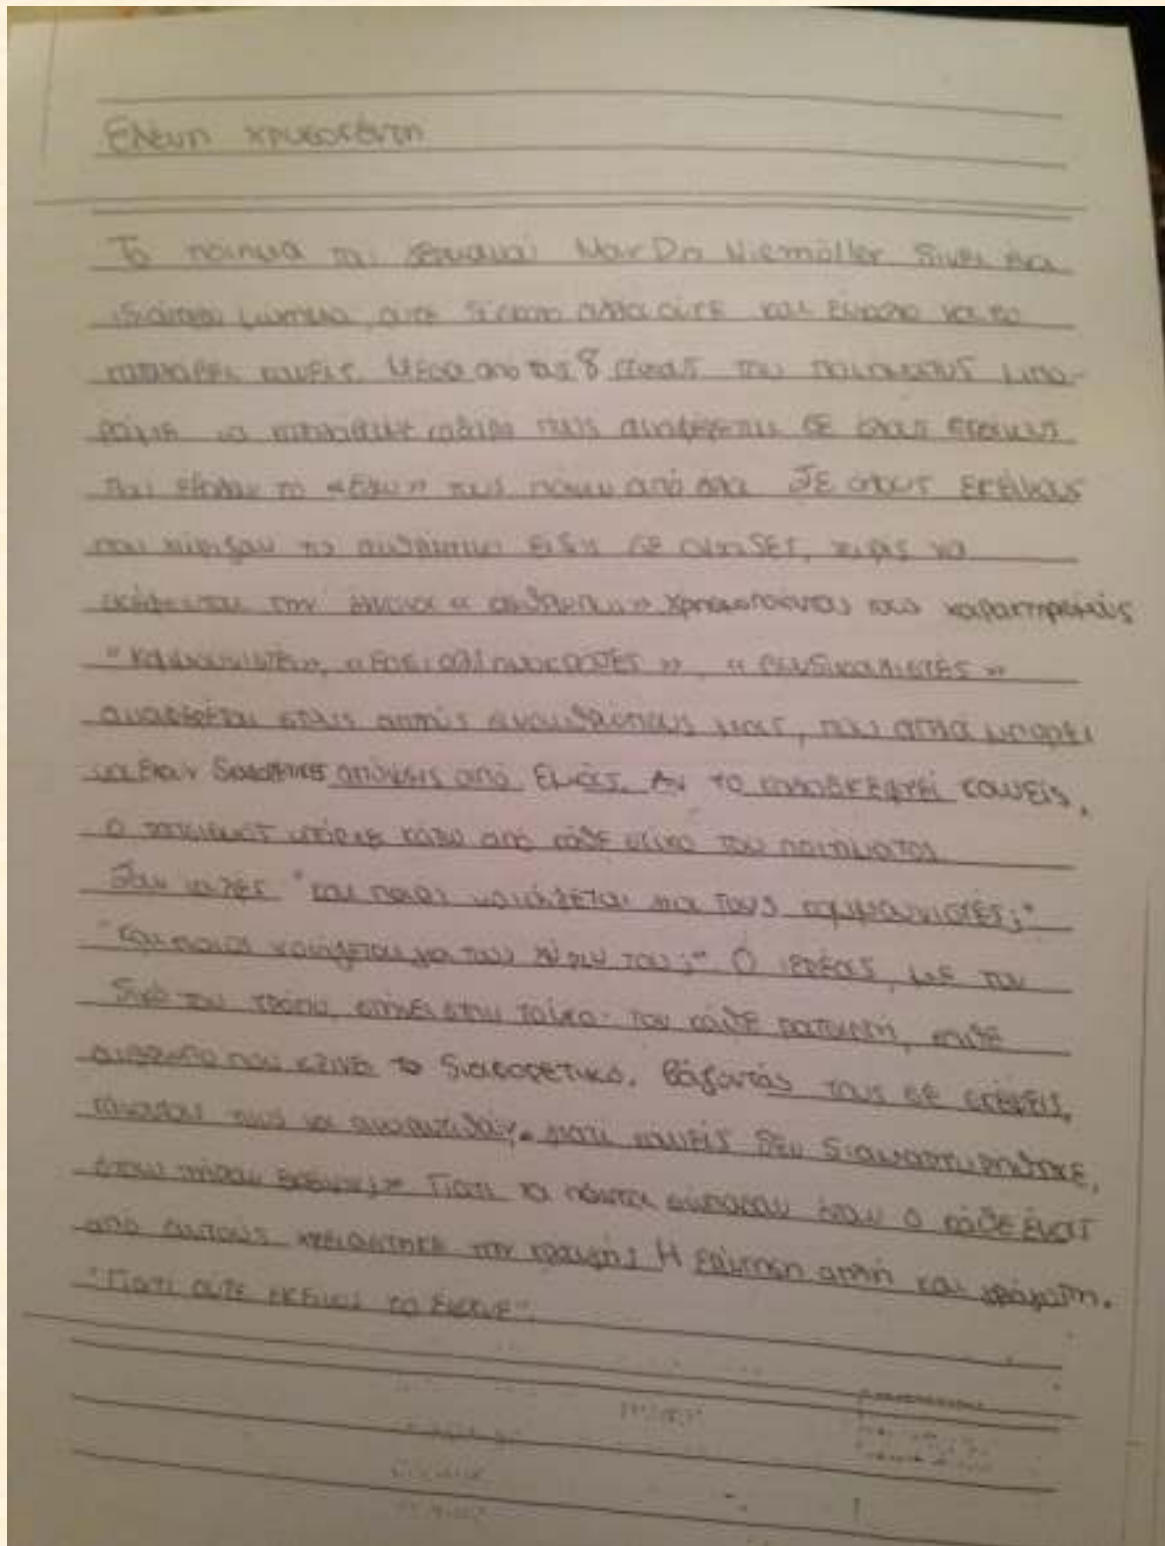 Ελένη
Το ποίημα του Γερμανού Martin Niemöller δίνει ένα
ιδιαίτερο μήνυμα, ούτε δύσκολο αλλά ούτε και εύκολο να το
καταλάβει κανείς. Μέσα από τις 8 του ποιήματος μπο-
ρούμε να πως αναφέρεται σε όλους εκείνους
που έβαλαν το «Εγώ» τους πάνω από όλα. Σε όλους εκείνους
που το ανθρώπινο είδος σε ομάδες, χωρίς να
σκέφτονται την έννοια « άνθρωπος » χρησιμοποιώντας τους χαρακτηρισμούς
"κομμουνιστές», «σοσιαλδημοκράτες », « συνδικαλιστές »
αναφέρεται στους απλούς συνανθρώπους μας, που απλά μπορεί
να έχουν διαφορετικές απόψεις από εμάς. Αν το καλοσκεφτεί κανείς,
ο υπήρχε κάτω από κάθε στίχο του ποιήματος.
Σαν να λες "και ποιος νοιάζεται για τους κομμουνιστές;"
"και ποιος νοιάζεται για τον του;" Ο ιερέας, με τον
δικό του τρόπο, στήνει στον τοίχο τον κάθε ρατσιστή, κάθε
άνθρωπο που κρίνει το διαφορετικό. Βάζοντάς τους σε σκέψεις,
κάνοντας τους να αναρωτηθούν «γιατί κανείς δεν διαμαρτυρήθηκε,
όταν πήραν εκείνους;» Γιατί τα πάντα σώπασαν όταν ο κάθε ένας
από αυτούς χρειάστηκε την κραυγή; Η απάντηση απλή και
"Γιατί ούτε εκείνος το έκανε".